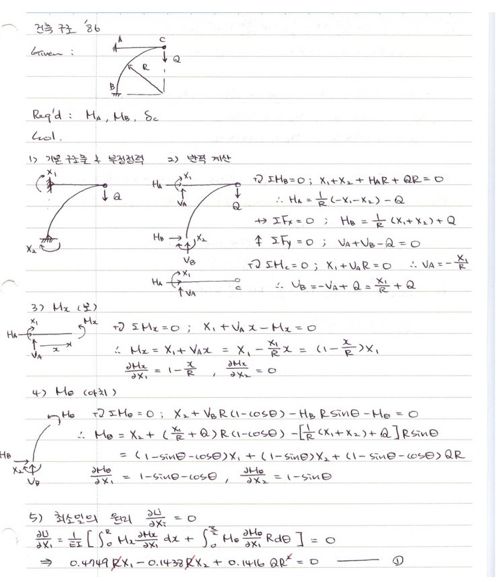 건축 구조 '86
Given :
A
C
Q
R
B
Req'd : M_A, M_B, δ_c
Sol.
1) 기본 구조물 & 부정정력 2) 반력 계산
X₁
Q
X₂
H_A
X₁
V_A
Q
H_B
X₂
V_B
H_A
X₁
V_A
C
↷ ΣM_B=0 ; X₁+X₂+H_AR+QR=0
∴ H_A=1/R(-X₁-X₂)-Q
→ ΣF_x=0 ; H_B=1/R(X₁+X₂)+Q
↑ ΣF_y=0 ; V_A+V_B-Q=0
↷ ΣM_c=0 ; X₁+V_AR=0 ∴ V_A=-X₁/R
∴ V_B=-V_A+Q=X₁/R+Q
3) M_x (보)
H_A
X₁
M_x
V_A
x
↷ ΣM_x=0 ; X₁+V_Ax-M_x=0
∴ M_x=X₁+V_Ax=X₁-X₁/R x=(1-x/R)X₁
∂M_x/∂X₁=1-x/R , ∂M_x/∂X₂=0
4) M_θ (아치)
M_θ
H_B
X₂
V_B
↷ ΣM_θ=0 ; X₂+V_BR(1-cosθ)-H_BRsinθ-M_θ=0
∴ M_θ=X₂+(X₁/R+Q)R(1-cosθ)-[1/R(X₁+X₂)+Q]Rsinθ
=(1-sinθ-cosθ)X₁+(1-sinθ)X₂+(1-sinθ-cosθ)QR
∂M_θ/∂X₁=1-sinθ-cosθ , ∂M_θ/∂X₂=1-sinθ
5) 최소일의 원리 ∂U/∂X₁=0
∂U/∂X₁=1/EI[∫₀^R M_x ∂M_x/∂X₁ dx+∫₀^(π/2) M_θ ∂M_θ/∂X₁ Rdθ]=0
⇒ 0.4749RX₁-0.1438RX₂+0.1416QR²=0 ―― ①